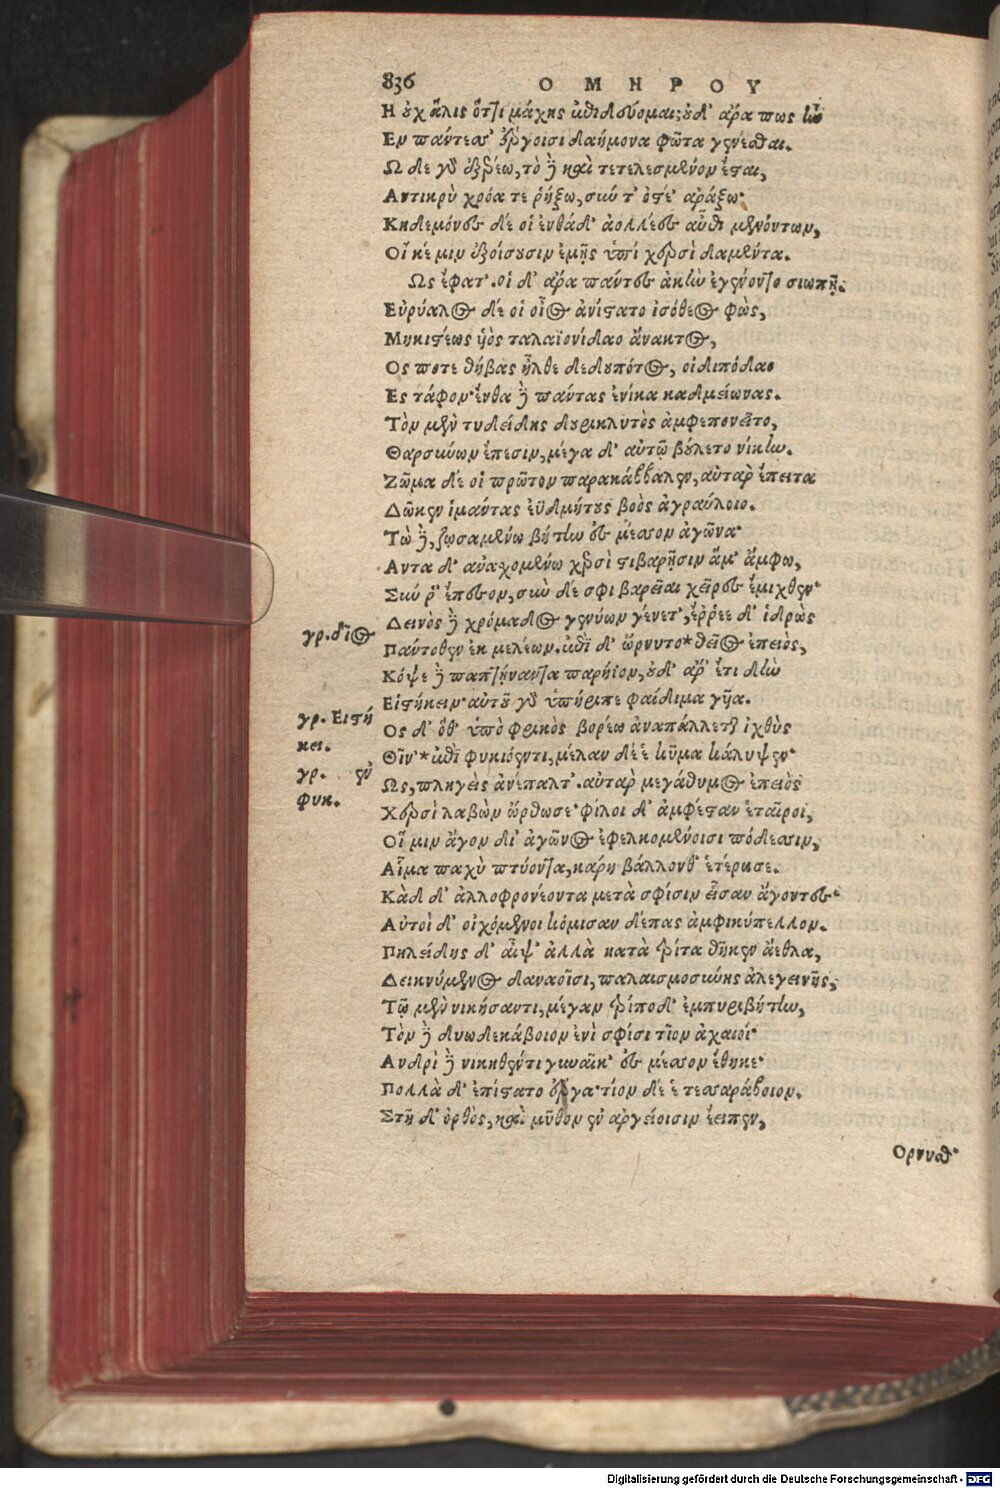 836 ΟΜΗΡΟΥ
Η οὐχ ἅλις ὅττι μάχης ἐπιδεύομαι; οὐδ' ἄρα πως ἦν
Εν πάντεσσ' ἔργοισι δαήμονα φῶτα γενέσθαι.
Ω δε γὰρ ἐξερέω, τὸ δὲ καὶ τετελεσμένον ἔσται,
Αντικρὺ χρόα τε ῥήξω, σύν τ' ὀστέ' ἀράξω·
Κηδεμόνες δέ οἱ ἐνθάδ' ἀολλέες αὖθι μενόντων,
Οἵ κέ μιν ἐξοίσουσιν ἐμῇς ὑπὸ χερσὶ δαμέντα.
Ως ἔφατ'. οἱ δ' ἄρα πάντες ἀκὴν ἐγένοντο σιωπῇ.
Εὐρύαλος δέ οἱ οἶος ἀνίστατο ἰσόθεος φὼς,
Μηκιστέως ὑὸς ταλαϊονίδαο ἄνακτος,
Ος ποτε θήβας ἦλθε δεδουπότος, οἰδιπόδαο
Ες τάφον· ἔνθα δὲ πάντας ἐνίκα καδμείωνας.
Τὸν μὲν τυδείδης δουρικλυτὸς ἀμφεπονεῖτο,
Θαρσύνων ἔπεσιν, μέγα δ' αὐτῷ βούλετο νίκην.
Ζῶμα δέ οἱ πρῶτον παρακάββαλεν, αὐτὰρ ἔπειτα
Δῶκεν ἱμάντας ἐϋδμήτους βοὸς ἀγραύλοιο.
Τὼ δὲ, ζωσαμένω βήτην ἐς μέσσον ἀγῶνα·
Αντα δ' ἀναχομένω χερσὶ στιβαρῇσιν ἅμ' ἄμφω,
Σύν ῥ' ἔπεσον, σὺν δέ σφι βαρεῖαι χεῖρες ἔμιχθεν·
Δεινὸς δὲ χρόμαδος γενύων γένετ', ἔρρεε δ' ἱδρὼς
γρ. δῖος
Πάντοθεν ἐκ μελέων. ἐπὶ δ' ὤρνυτο* θεῖος ἐπειὸς,
Κόψε δὲ παπτήναντα παρήϊον, οὐδ' ἄρ' ἔτι δὴν
Εἱστήκειν· αὐτοῦ γὰρ ὑπήριπε φαίδιμα γῆα.
γρ. Εἱστή
κει.
Ος δ' ὅθ' ὑπὸ φρικὸς βορέω ἀναπάλλεται ἰχθὺς
Θῖν' * ἐπὶ φυκιόεντι, μέλαν δέ ἑ κῦμα κάλυψεν·
γρ. ἐν
φυκ.
Ως, πληγεὶς ἀνέπαλτ'. αὐτὰρ μεγάθυμος ἐπειὸς
Χερσὶ λαβὼν ὤρθωσε· φίλοι δ' ἀμφέσταν ἑταῖροι,
Οἵ μιν ἄγον δι' ἀγῶνος ἐφελκομένοισι πόδεσσιν,
Αἷμα παχὺ πτύοντα, κάρη βάλλονθ' ἑτέρωσε.
Κὰδ δ' ἀλλοφρονέοντα μετὰ σφίσιν εἷσαν ἄγοντες·
Αὐτοὶ δ' οἰχόμενοι κόμισαν δέπας ἀμφικύπελλον.
Πηλείδης δ' αἶψ' ἀλλὰ κατὰ τρίτα θῆκεν ἄεθλα,
Δεικνύμενος δαναοῖσι, παλαισμοσύνης ἀλεγεινῆς,
Τῷ μὲν νικήσαντι, μέγαν τρίποδ' ἐμπυριβήτην,
Τὸν δὲ δυωδεκάβοιον ἐνὶ σφίσι τῖον ἀχαιοί·
Ανδρὶ δὲ νικηθέντι γυναῖκ' ἐς μέσσον ἔθηκε·
Πολλὰ δ' ἐπίστατο ἔργα· τίον δέ ἑ τεσσαράβοιον.
Στῆ δ' ὀρθὸς, καὶ μῦθον ἐν ἀργείοισιν ἔειπεν,
Ορνυσθ'
Digitalisierung gefördert durch die Deutsche Forschungsgemeinschaft - DFG